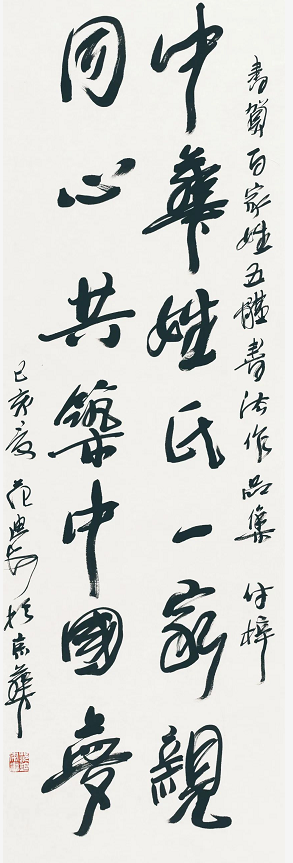 書賀百家姓五體書法作品集 付梓
中華姓氏一家親
同心共築中國夢
己亥夏 范迪安於京華